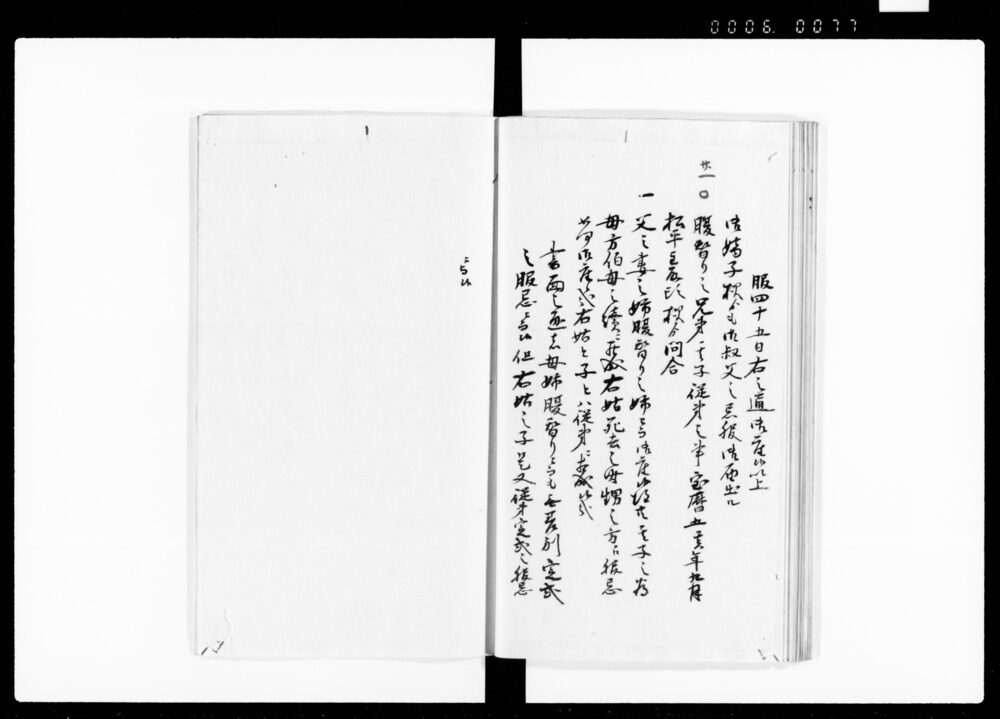 0006.0077
服四十五日右之通御座候以上
御嫡子様ニも御叔父之忌服御届出ル
廿一
○ 腹替り之兄弟其子従弟之事 宝暦五亥年九月
松平 様ゟ問合
一 父之妻之姉腹替り之姉ニ而御座候得共其子之為
母方伯母之続ニ罷成右姑死去之節甥之方ニ服忌
御座候哉右姑と子とハ従弟ニ相成候哉
書面之通ニ者母姉腹替りニ而も無差別定式
之服忌ニ而候但右姑之子是又従弟定式之服忌
ニ而候